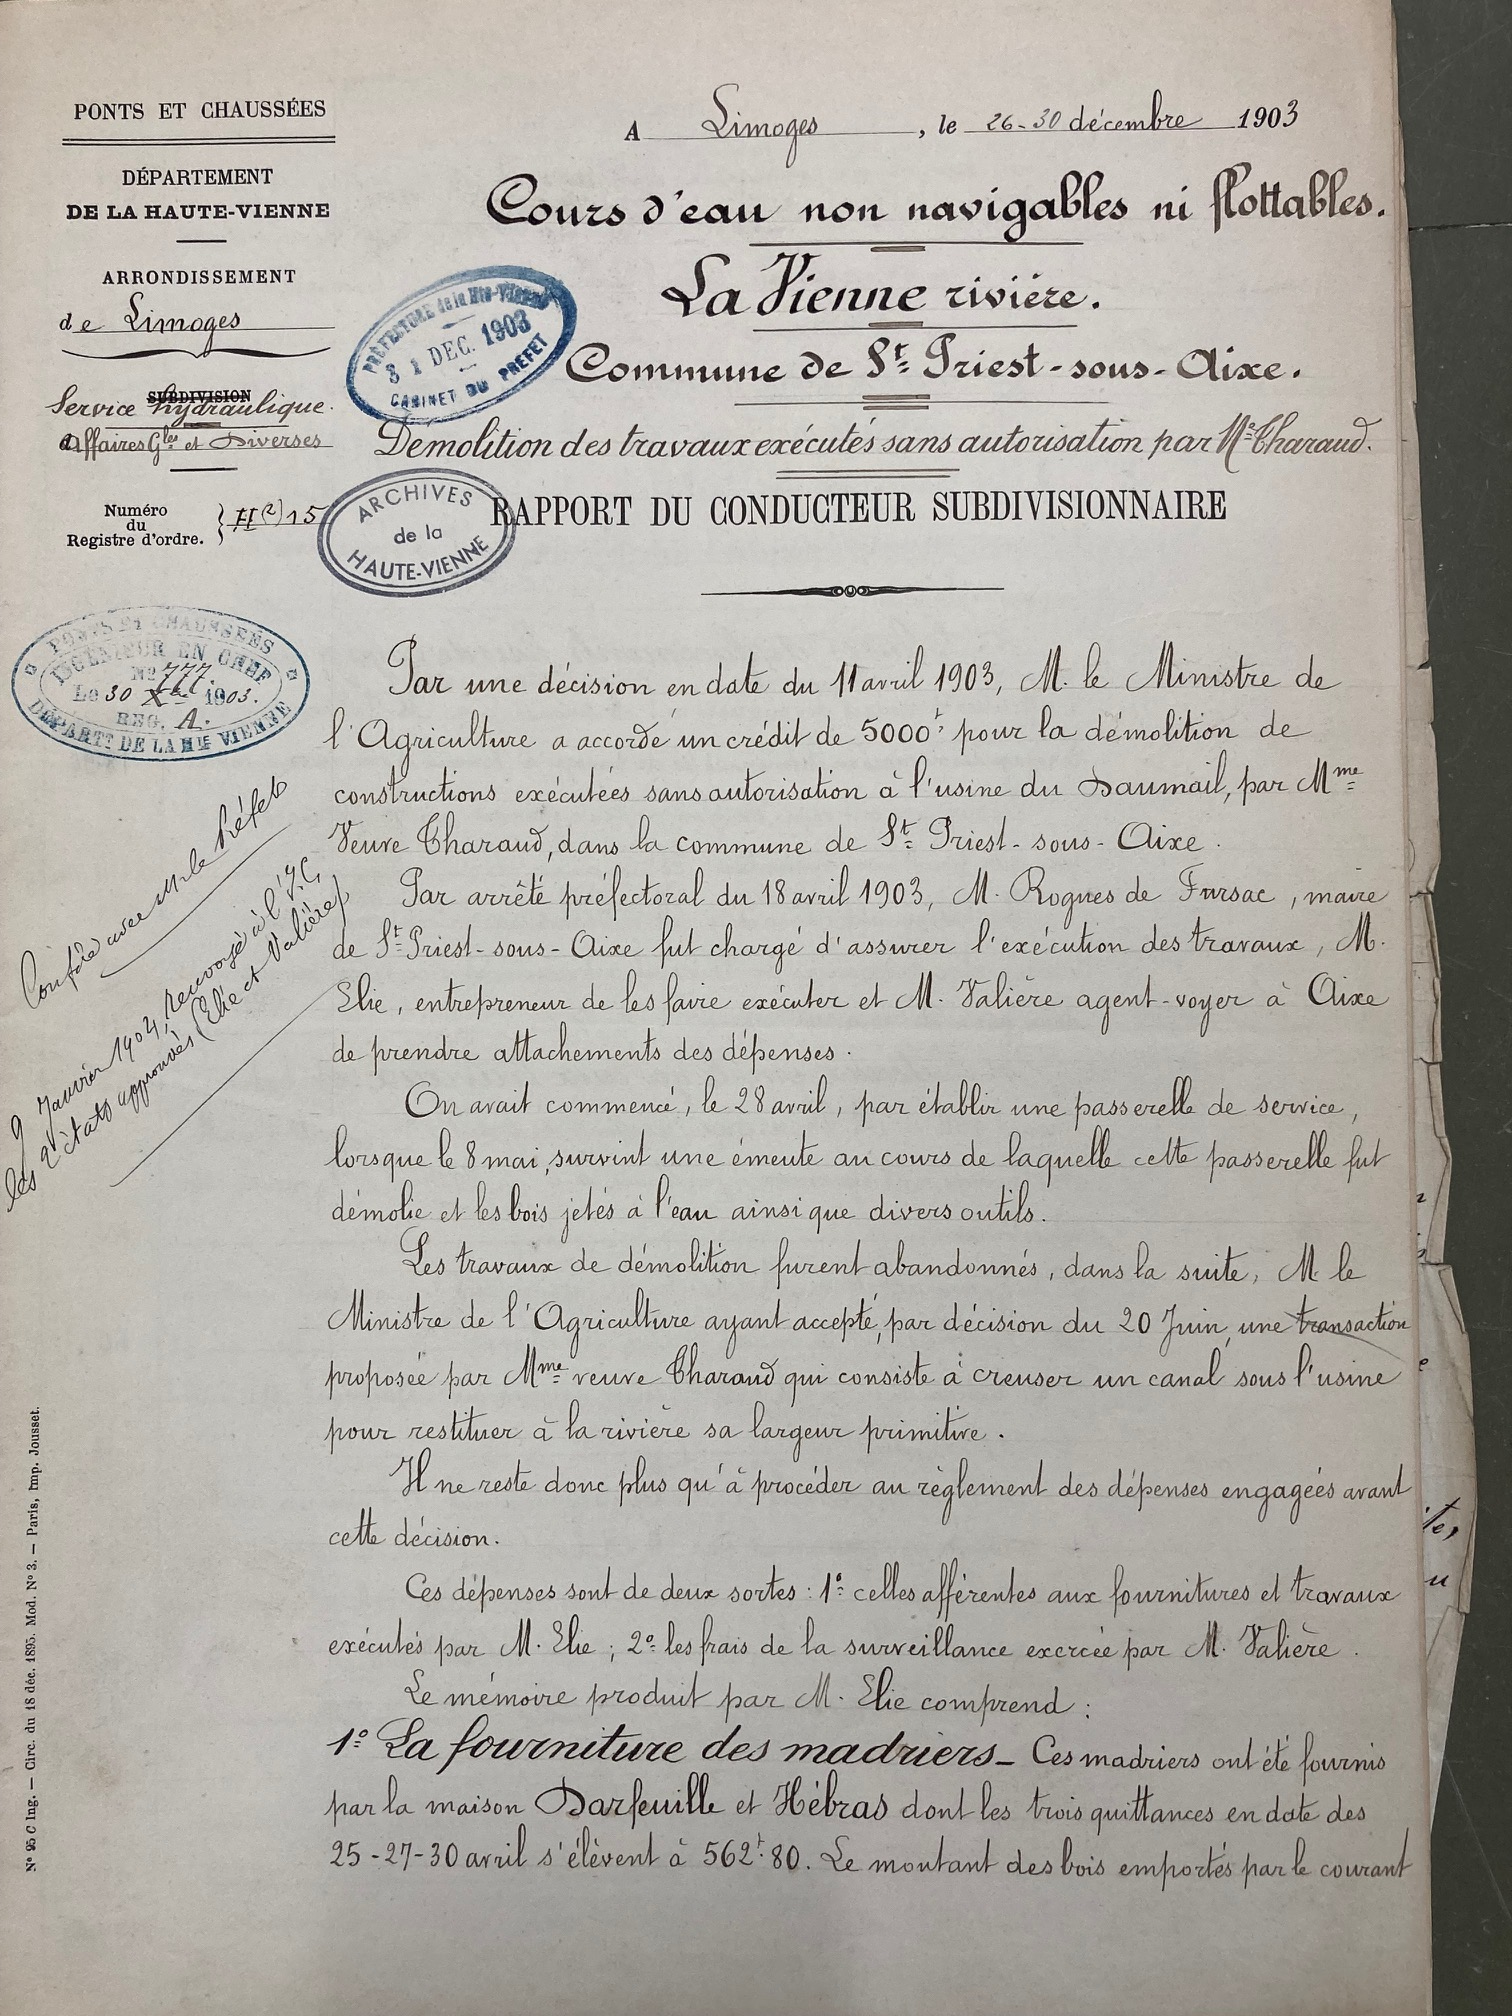 PONTS ET CHAUSSÉES
DÉPARTEMENT
DE LA HAUTE-VIENNE
ARRONDISSEMENT
de Limoges
SUBDIVISION
Service hydraulique.
Affaires Gles et Diverses
Numéro
du
Registre d'ordre.
H(2) 15
A Limoges, le 26-30 décembre 1903
Cours d'eau non navigables ni flottables.
La Vienne rivière.
Commune de St Priest-sous-Aixe.
Démolition des travaux exécutés sans autorisation par Me Tharaud.
RAPPORT DU CONDUCTEUR SUBDIVISIONNAIRE
PRÉFECTURE de la Hte-VIENNE
31 DEC. 1903
CABINET DU PREFET
ARCHIVES
de la
HAUTE-VIENNE
PONTS ET CHAUSSÉES
INGÉNIEUR EN CHEF
No 777.
Le 30 Xbre 1903.
REG. A.
DÉPARTT DE LA HTE VIENNE
Conféré avec M. le Préfet
9 Janvier 1904, renvoyé à l'I. C.
les 2 états approuvés (Elie et Valière)
Par une décision en date du 11 avril 1903, M. le Ministre de
l'Agriculture a accordé un crédit de 5000f pour la démolition de
constructions exécutées sans autorisation à l'usine du Daumail, par Mme
Veuve Tharaud, dans la commune de St Priest-sous-Aixe.
Par arrêté préfectoral du 18 avril 1903, M. Rogues de Fursac, maire
de St Priest-sous-Aixe fut chargé d'assurer l'exécution des travaux, M.
Elie, entrepreneur de les faire exécuter et M. Valière agent-voyer à Aixe
de prendre attachements des dépenses.
On avait commencé, le 28 avril, par établir une passerelle de service,
lorsque le 8 mai, survint une émeute au cours de laquelle cette passerelle fut
démolie et les bois jetés à l'eau ainsi que divers outils.
Les travaux de démolition furent abandonnés, dans la suite, M. le
Ministre de l'Agriculture ayant accepté, par décision du 20 Juin, une transaction
proposée par Mme veuve Tharaud qui consiste à creuser un canal sous l'usine
pour restituer à la rivière sa largeur primitive.
Il ne reste donc plus qu'à procéder au règlement des dépenses engagées avant
cette décision.
Ces dépenses sont de deux sortes : 1º celles afférentes aux fournitures et travaux
exécutés par M. Elie ; 2º les frais de la surveillance exercée par M. Valière.
Le mémoire produit par M. Elie comprend :
1º La fourniture des madriers - Ces madriers ont été fournis
par la maison Darfeuille et Hébras dont les trois quittances en date des
25-27-30 avril s'élèvent à 562f.80. Le montant des bois emportés par le courant
Nº 95 C Ing. — Circ. du 18 déc. 1895. Mod. Nº 3. — Paris, Imp. Jousset.